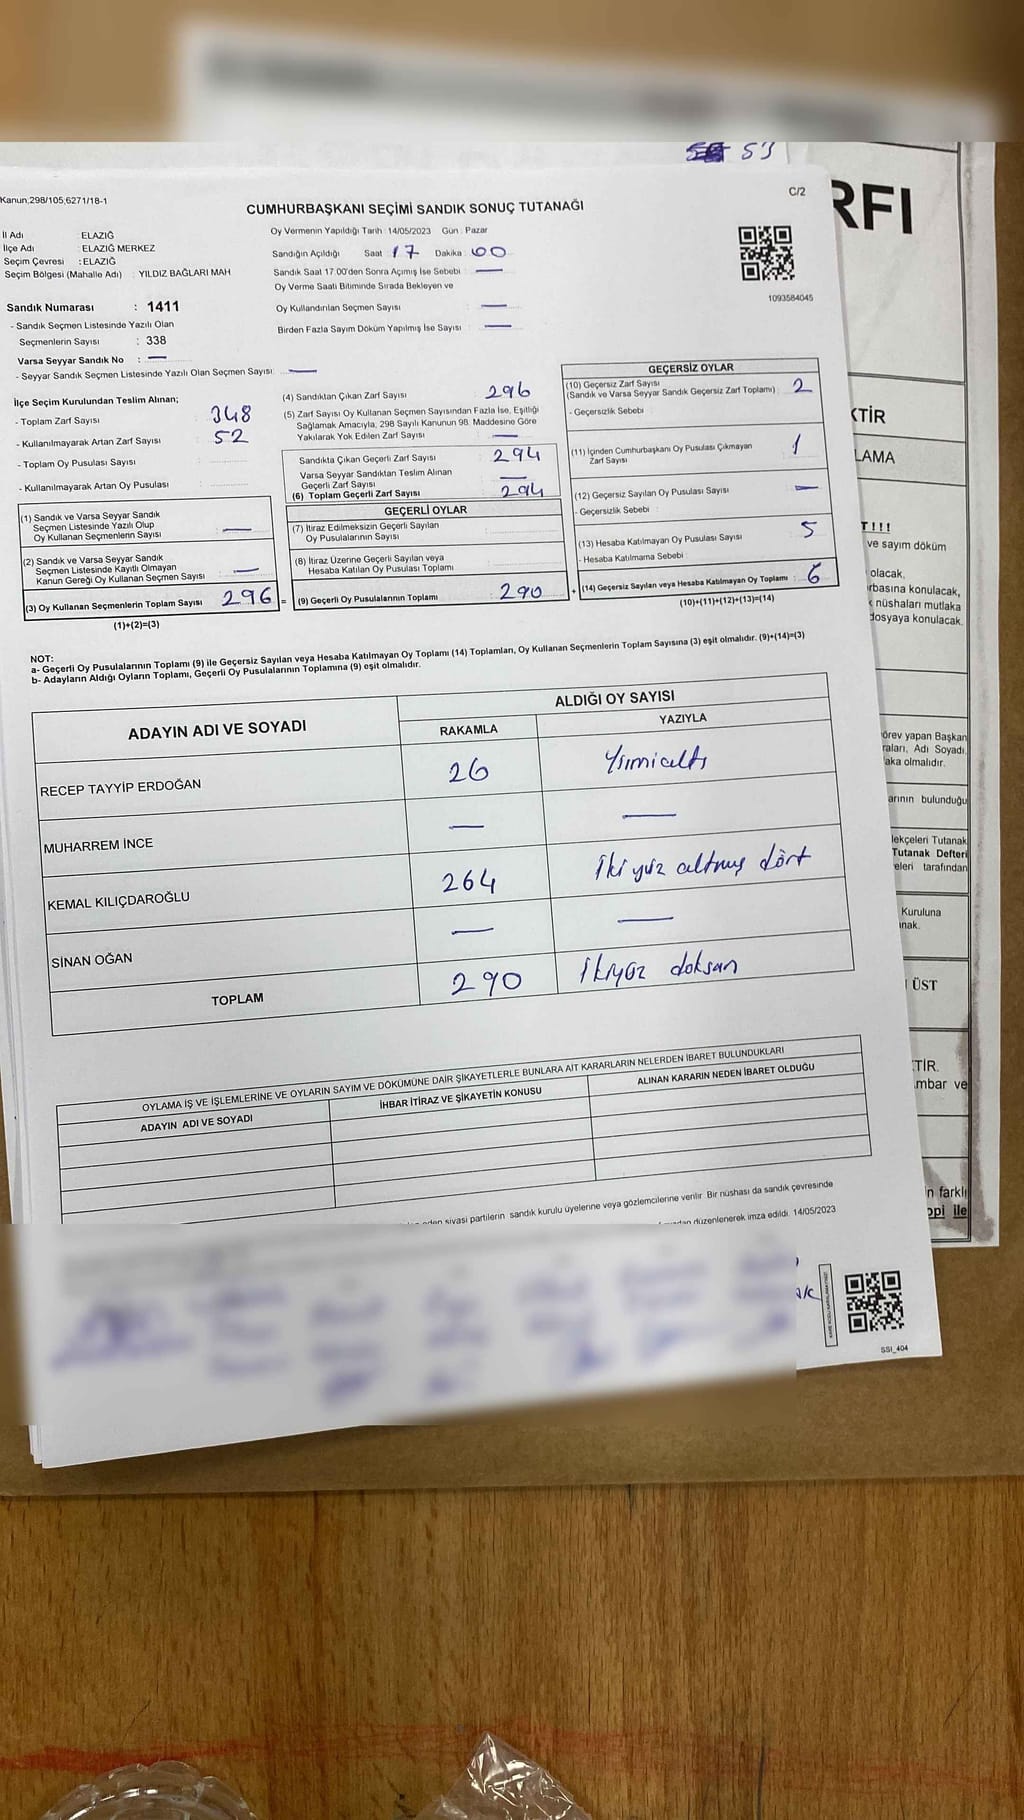 53
Kanun;298/105,6271/18-1
C/2
CUMHURBAŞKANI SEÇİMİ SANDIK SONUÇ TUTANAĞI
İl Adı : ELAZIĞ
İlçe Adı : ELAZIĞ MERKEZ
Seçim Çevresi : ELAZIĞ
Seçim Bölgesi (Mahalle Adı) : YILDIZ BAĞLARI MAH
Sandık Numarası : 1411
- Sandık Seçmen Listesinde Yazılı Olan
Seçmenlerin Sayısı : 338
Varsa Seyyar Sandık No : —
- Seyyar Sandık Seçmen Listesinde Yazılı Olan Seçmen Sayısı: —
Oy Vermenin Yapıldığı Tarih : 14/05/2023 Gün : Pazar
Sandığın Açıldığı Saat 17 Dakika 00
Sandık Saat 17.00'den Sonra Açımış İse Sebebi —
Oy Verme Saati Bitiminde Sırada Bekleyen ve
Oy Kullandırılan Seçmen Sayısı —
Birden Fazla Sayım Döküm Yapılmış İse Sayısı —
1093584045
İlçe Seçim Kurulundan Teslim Alınan;
- Toplam Zarf Sayısı 348
- Kullanılmayarak Artan Zarf Sayısı 52
- Toplam Oy Pusulası Sayısı
- Kullanılmayarak Artan Oy Pusulası
(1) Sandık ve Varsa Seyyar Sandık
Seçmen Listesinde Yazılı Olup
Oy Kullanan Seçmenlerin Sayısı —
(2) Sandık ve Varsa Seyyar Sandık
Seçmen Listesinde Kayıtlı Olmayan
Kanun Gereği Oy Kullanan Seçmen Sayısı : —
(3) Oy Kullanan Seçmenlerin Toplam Sayısı 296 =
(1)+(2)=(3)
(4) Sandıktan Çıkan Zarf Sayısı 296
(5) Zarf Sayısı Oy Kullanan Seçmen Sayısından Fazla İse, Eşitliği
Sağlamak Amacıyla, 298 Sayılı Kanunun 98. Maddesine Göre
Yakılarak Yok Edilen Zarf Sayısı —
Sandıkta Çıkan Geçerli Zarf Sayısı 294
Varsa Seyyar Sandıktan Teslim Alınan
Geçerli Zarf Sayısı —
(6) Toplam Geçerli Zarf Sayısı 294
GEÇERLİ OYLAR
(7) İtiraz Edilmeksizin Geçerli Sayılan
Oy Pusulalarının Sayısı
(8) İtiraz Üzerine Geçerli Sayılan veya
Hesaba Katılan Oy Pusulası Toplamı
(9) Geçerli Oy Pusulalarının Toplamı : 290 +
GEÇERSİZ OYLAR
(10) Geçersiz Zarf Sayısı
(Sandık ve Varsa Seyyar Sandık Geçersiz Zarf Toplamı) : 2
- Geçersizlik Sebebi :
(11) İçinden Cumhurbaşkanı Oy Pusulası Çıkmayan
Zarf Sayısı 1
(12) Geçersiz Sayılan Oy Pusulası Sayısı —
- Geçersizlik Sebebi :
(13) Hesaba Katılmayan Oy Pusulası Sayısı 5
- Hesaba Katılmama Sebebi :
(14) Geçersiz Sayılan veya Hesaba Katılmayan Oy Toplamı : 6
(10)+(11)+(12)+(13)=(14)
NOT:
a- Geçerli Oy Pusulalarının Toplamı (9) ile Geçersiz Sayılan veya Hesaba Katılmayan Oy Toplamı (14) Toplamları, Oy Kullanan Seçmenlerin Toplam Sayısına (3) eşit olmalıdır. (9)+(14)=(3)
b- Adayların Aldığı Oyların Toplamı, Geçerli Oy Pusulalarının Toplamına (9) eşit olmalıdır.
ADAYIN ADI VE SOYADI
ALDIĞI OY SAYISI
RAKAMLA YAZIYLA
RECEP TAYYİP ERDOĞAN 26 Yirmialtı
MUHARREM İNCE — —
KEMAL KILIÇDAROĞLU 264 İki yüz altmış dört
SİNAN OĞAN — —
TOPLAM 290 İkiyüz doksan
OYLAMA İŞ VE İŞLEMLERİNE VE OYLARIN SAYIM VE DÖKÜMÜNE DAİR ŞİKAYETLERLE BUNLARA AİT KARARLARIN NELERDEN İBARET BULUNDUKLARI
ADAYIN ADI VE SOYADI İHBAR İTİRAZ VE ŞİKAYETİN KONUSU ALINAN KARARIN NEDEN İBARET OLDUĞU
siyasi partilerin sandık kurulu üyelerine veya gözlemcilerine verilir. Bir nüshası da sandık çevresinde
düzenlenerek imza edildi. 14/05/2023
SSI_404
RFI
KTİR
LAMA
T!!!
ve sayım döküm
olacak,
rbasına konulacak,
nüshaları mutlaka
dosyaya konulacak.
örev yapan Başkan
raları, Adı Soyadı,
aka olmalıdır.
arının bulunduğu
lekçeleri Tutanak
Tutanak Defteri
eleri tarafından
Kuruluna
nak.
ÜST
TİR.
mbar ve
n farklı
opi ile